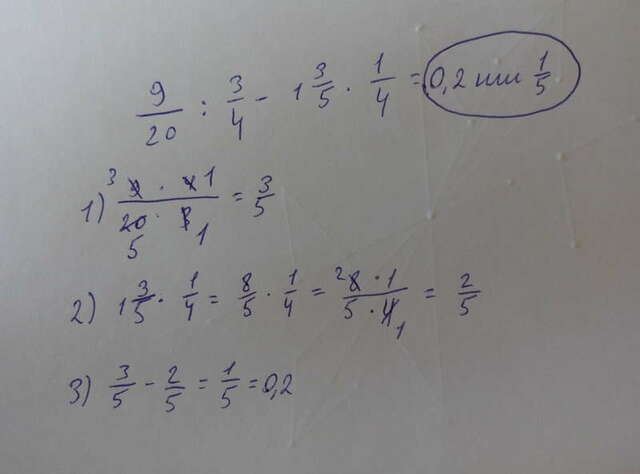 9/20 : 3/4 - 1 3/5 · 1/4 = 0,2 или 1/5
1) 3 9 · 4 1 / 20 5 · 3 1 = 3/5
2) 1 3/5 · 1/4 = 8/5 · 1/4 = 2 8 · 1 / 5 · 4 1 = 2/5
3) 3/5 - 2/5 = 1/5 = 0,2